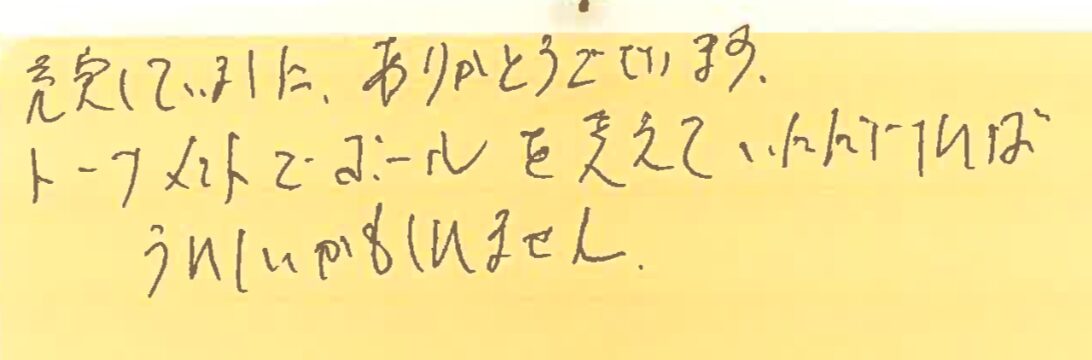 完していました、ありがとうございます、
トーナメントでボールを考えていただければ
うれしいかもしれません.